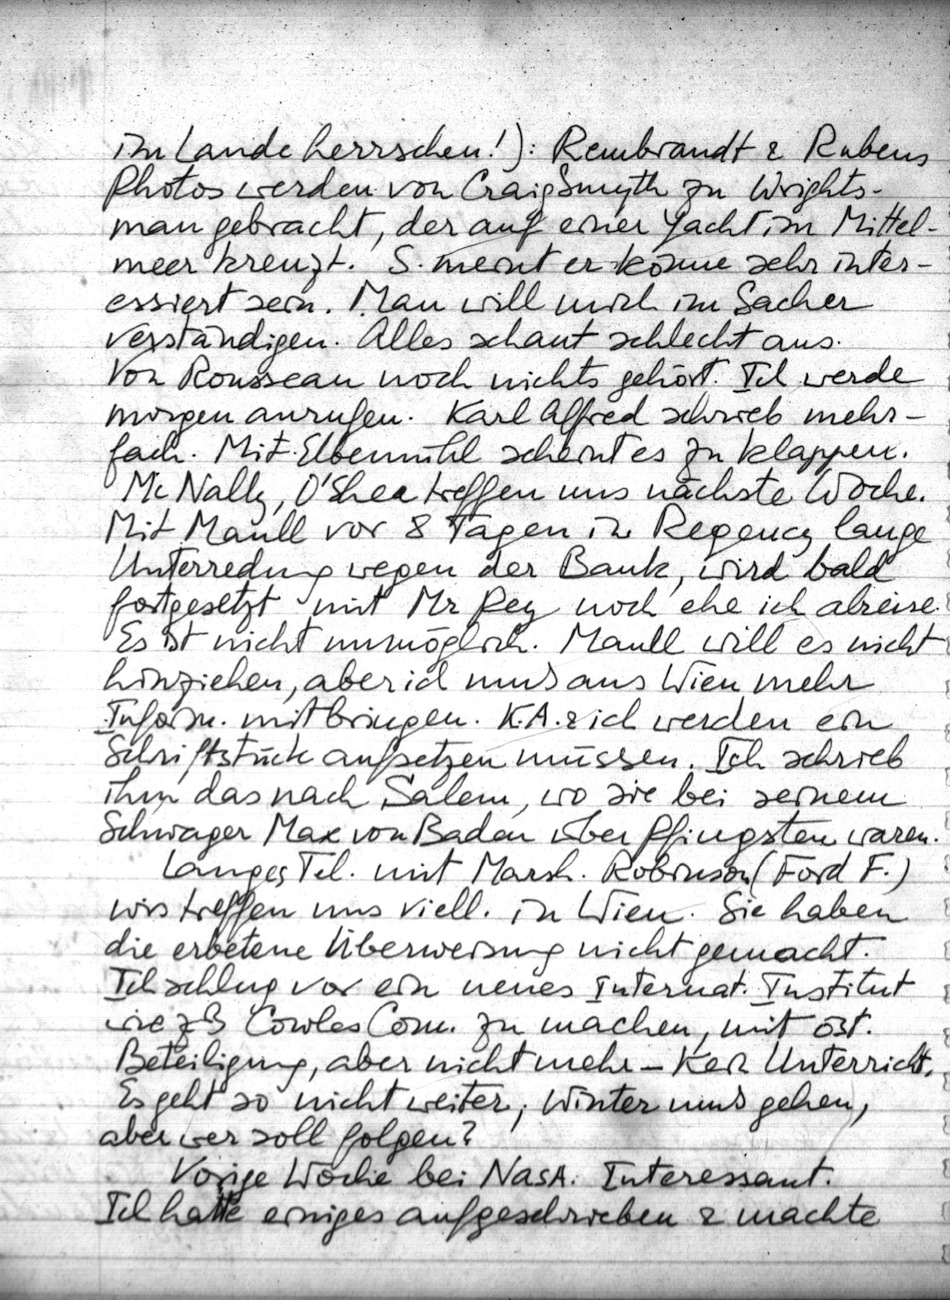 im Lande herrschen!): Rembrandt & Rubens
Photos werden von Craig Smyth zu Wrights-
man gebracht, der auf einer Yacht im Mittel-
meer kreuzt. S. meint er könne sehr inter-
essiert sein. Man will mich im Sacher
verständigen. Alles schaut schlecht aus.
Von Rousseau noch nichts gehört. Ich werde
morgen anrufen. Karl Alfred schrieb mehr-
fach. Mit Elbemühl scheint es zu klappen.
McNally, O'Shea treffen uns nächste Woche.
Mit Maull vor 8 Tagen im Regency lange
Unterredung wegen der Bank, wird bald
fortgesetzt mit Mr Rey noch ehe ich abreise.
Es ist nicht unmöglich. Maull will es nicht
hinziehen, aber ich muss aus Wien mehr
Inform. mitbringen. K.A. & ich werden ein
Schriftstück aufsetzen müssen. Ich schrieb
ihm das nach Salem, wo sie bei seinem
Schwager Max von Baden über Pfingsten waren.
Langes Tel. mit Marsh. Robinson (Ford F.)
wir treffen uns viell. in Wien. Sie haben
die erbetene Überweisung nicht gemacht.
Ich schlug vor ein neues Internat. Institut
wie zB Cowles Com. zu machen, mit öst.
Beteiligung, aber nicht mehr – Kein Unterricht.
Es geht so nicht weiter; Winter muss gehen,
aber wer soll folgen?
Vorige Woche bei NASA. Interessant.
Ich hatte einiges aufgeschrieben & machte